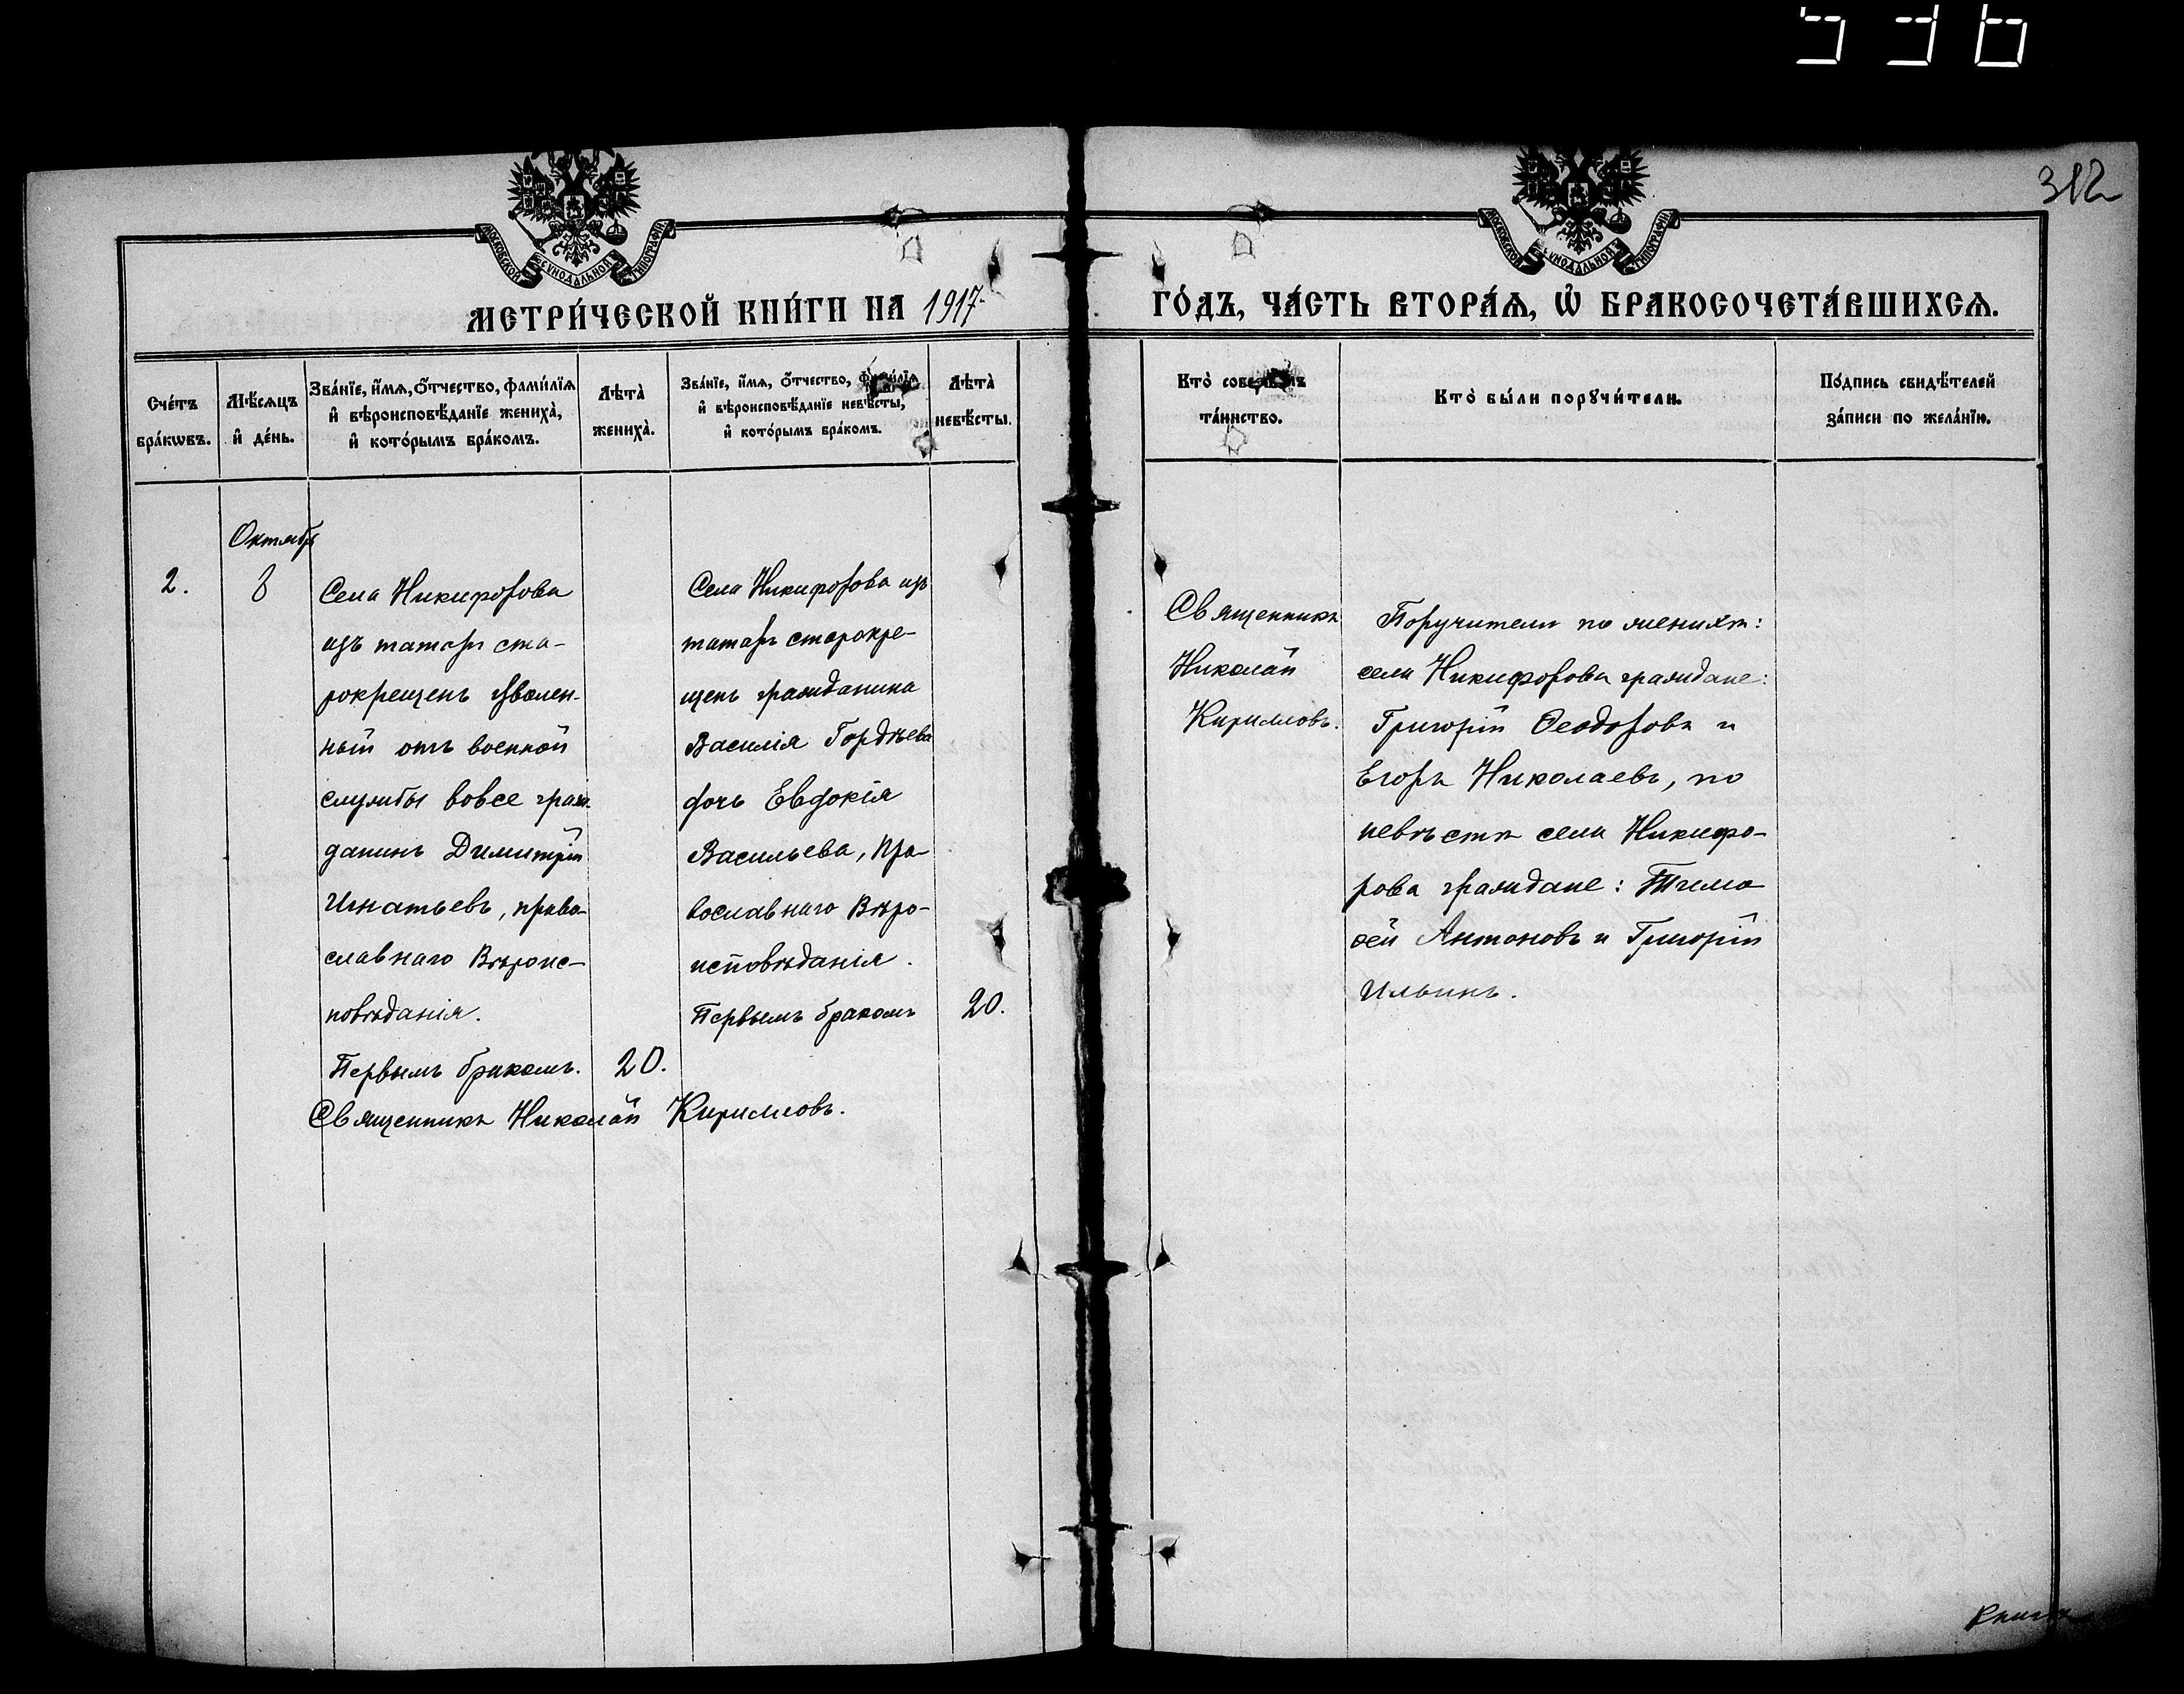 536
312
МОСКОВСКОЙ СѴНОДАЛЬНОЙ ТИПОГРАФІИ
МОСКОВСКОЙ СѴНОДАЛЬНОЙ ТИПОГРАФІИ
МЕТРИ́ЧЕСКОЙ КНИ́ГИ НА 1917
ГО́ДЪ, ЧА́СТЬ ВТОРА́Ѧ, Ѡ҆ БРАКОСОЧЕТА́ВШИХСѦ.
Сче́тъ
бра́кѡвъ.
Мѣ́сѧцъ
и҆ де́нь.
Зва́нїе, и҆́мѧ, ѻ҆́тчество, фами́лїѧ
и҆ вѣроисповѣ́данїе жениха̀,
и҆ кото́рымъ бра́комъ.
Лѣта̀
жениха̀.
Зва́нїе, и҆́мѧ, ѻ҆́тчество, фами́лїѧ
и҆ вѣроисповѣ́данїе невѣ́сты,
и҆ кото́рымъ бра́комъ.
Лѣта̀
невѣ́сты.
Кто̀
та́инство.
Кто̀ бы́ли порꙋчи́тели.
По́дпись свидѣ́телей
за́писи по жела́нїю.
Октябрь
2.
8
Села Никифорова
изъ татаръ ста-
рокрещенъ уволен-
ный отъ военной
службы вовсе граж-
данинъ Димитрій
Игнатьевъ, право-
славнаго Вѣроис-
повѣданія.
Первымъ бракомъ.
20.
Села Никифорова изъ
татаръ старокре-
щенъ гражданина
Василія Гордѣева
дочь Евдокія
Васильева, Пра-
вославнаго Вѣро-
исповѣданія.
Первымъ бракомъ
20.
Священникъ Николай Кирилловъ.
Священникъ
Николай
Кирилловъ.
Поручители по женихѣ:
села Никифорова граждане:
Григорій Ѳеодоровъ и
Егоръ Николаевъ, по
невѣстѣ села Никифо-
рова граждане: Тимо
ѳей Антоновъ и Григорій
Ильинъ.